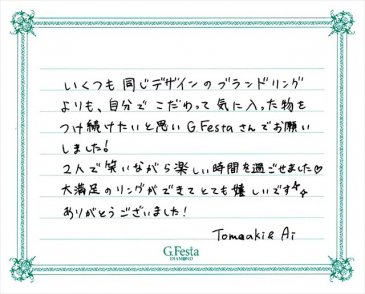 いくつも同じデザインのブランドリング
よりも、自分でこだわって気に入った物を
つけ続けたいと思いG.Festaさんでお願い
しました!
2人で笑いながら楽しい時間を過ごせました♡
大満足のリングができてとても嬉しいです✨
ありがとうございました!
Tomoaki & Ai
G.Festa
DIAMOND